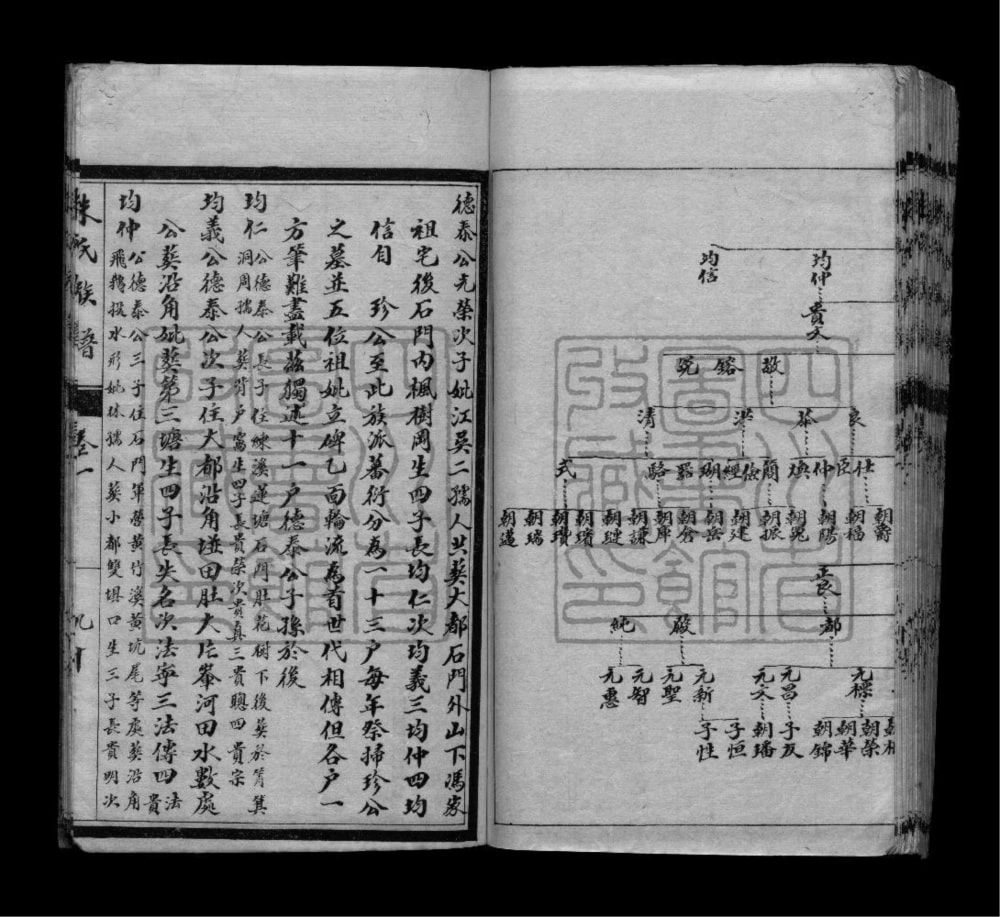 均仲
均信
貴文
敬
鎔
銳
良
恭
洪
清
仕
臣
仲
煥
簡
儉
經
瑚
器
駱
式
朝爵
朝福
朝陽
朝冕
朝振
朝建
朝岳
朝倉
朝庠
朝謙
朝璉
朝璸
朝瓚
朝瑞
朝邁
正良
都
殿
純
元標
元昌
元文
元新
元聖
元智
元惠
朝榮
朝華
朝錦
子友
朝璠
子恒
子性
德泰公元榮次子妣江吳二孺人共葬大都石門外山下馮家
祖宅後石門內楓樹岡生四子長均仁次均義三均仲四均
信自 珍公至此族派蕃衍分為一十三户每年祭掃珍公
之墓並五位祖妣立碑乙面輪流為首世代相傳但各户一
方筆難盡載茲獨述十一户德泰公子孫於後
均仁公德泰公長子住練溪蓮塘石門肚花樹下後葬於筲箕
洞周孺人葬背户窩生四子長貴榮次貴真三貴聰四貴宗
均義公德泰公次子住大都沿角墶田肚大片峯河田水數處
公葬沿角妣葬第三塘生四子長失名次法寧三法傳四法
貴
均仲公德泰公三子住石門軍營黃竹溪黃坑尾等處葬沿角
飛鵝投水形妣林孺人葬小都雙堪口生三子長貴明次
朱氏族譜
卷一
九